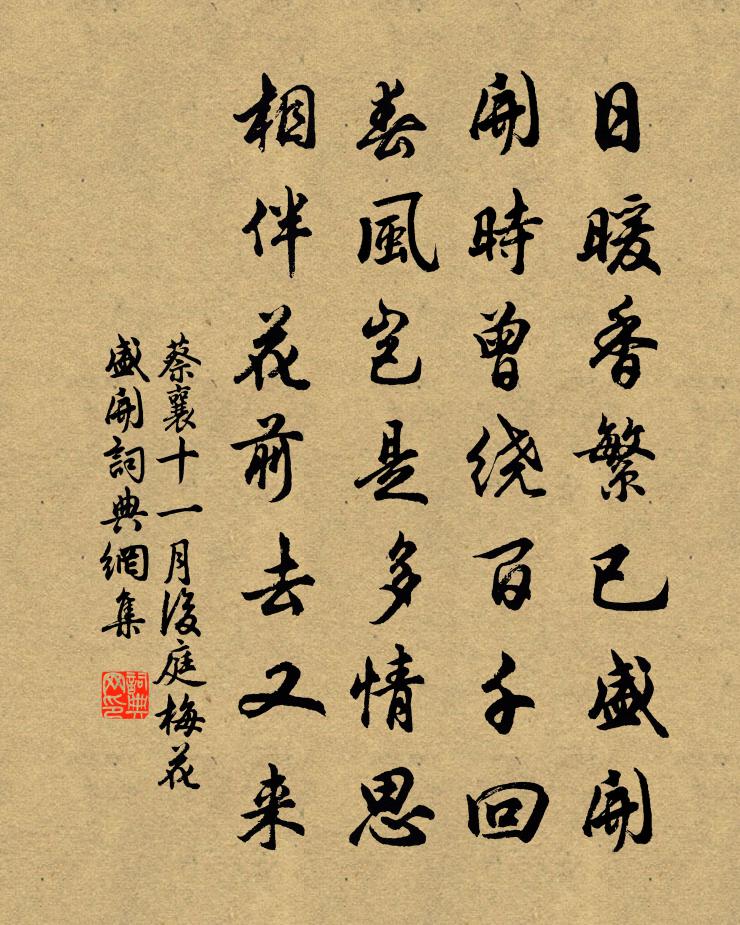 日暖香繁已盛開
開時曾繞百千回
春風豈是多情思
相伴花前去又来
蔡襄十一月後庭梅花
盛開詞典網集
詞典
网印